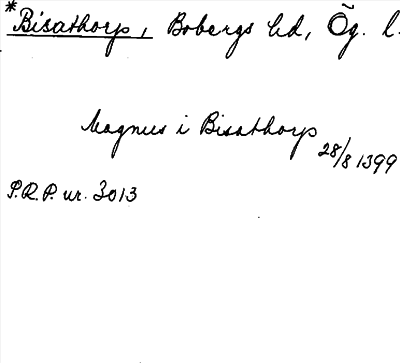 *Bisathorp, Bobergs hd, Ög. l.
Magnus i Bisathorp
28/8 1399
P.R.P. nr. 3013